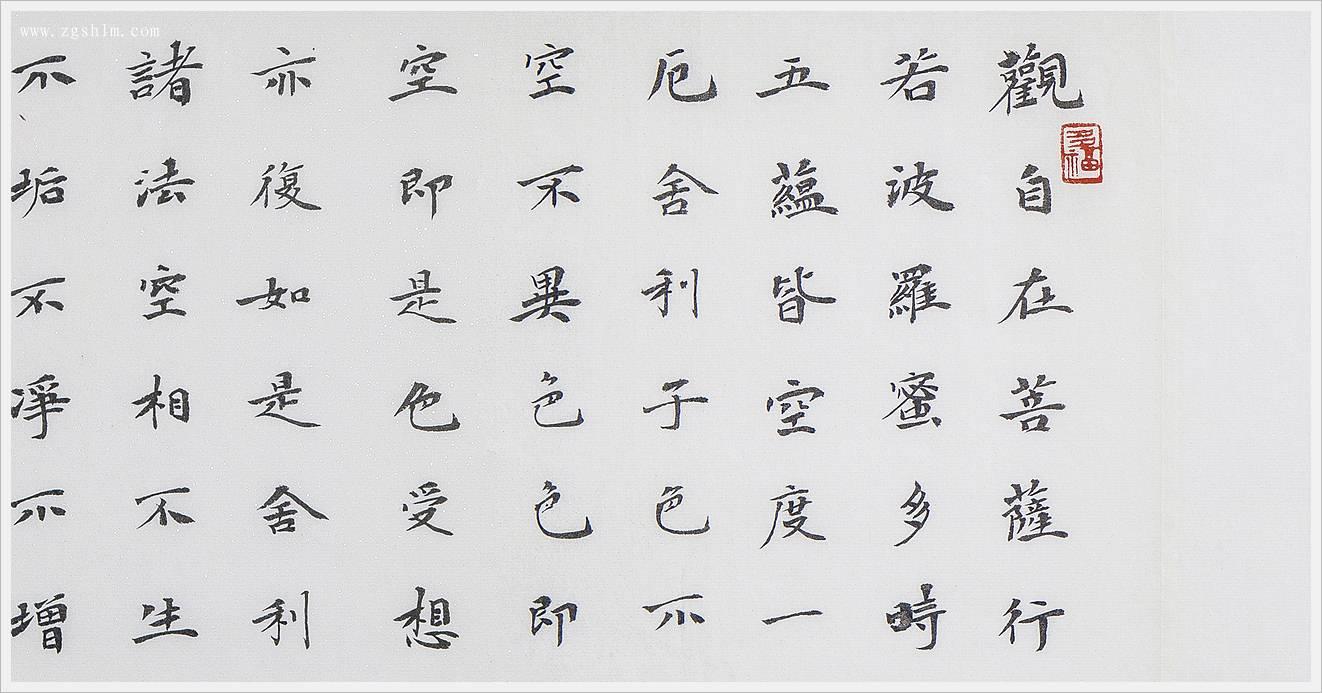 www.zgshlm.com
觀自在菩薩行
多福
若波羅蜜多時
五蘊皆空度一
厄舍利子色不
空不異色色即
空即是色受想
亦復如是舍利
諸法空相不生
不垢不淨不增